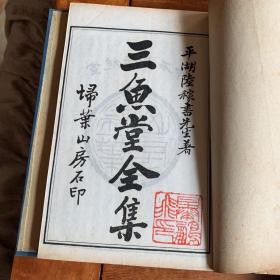 平湖陸稼書先生著
三魚堂全集
埽葉山房石印